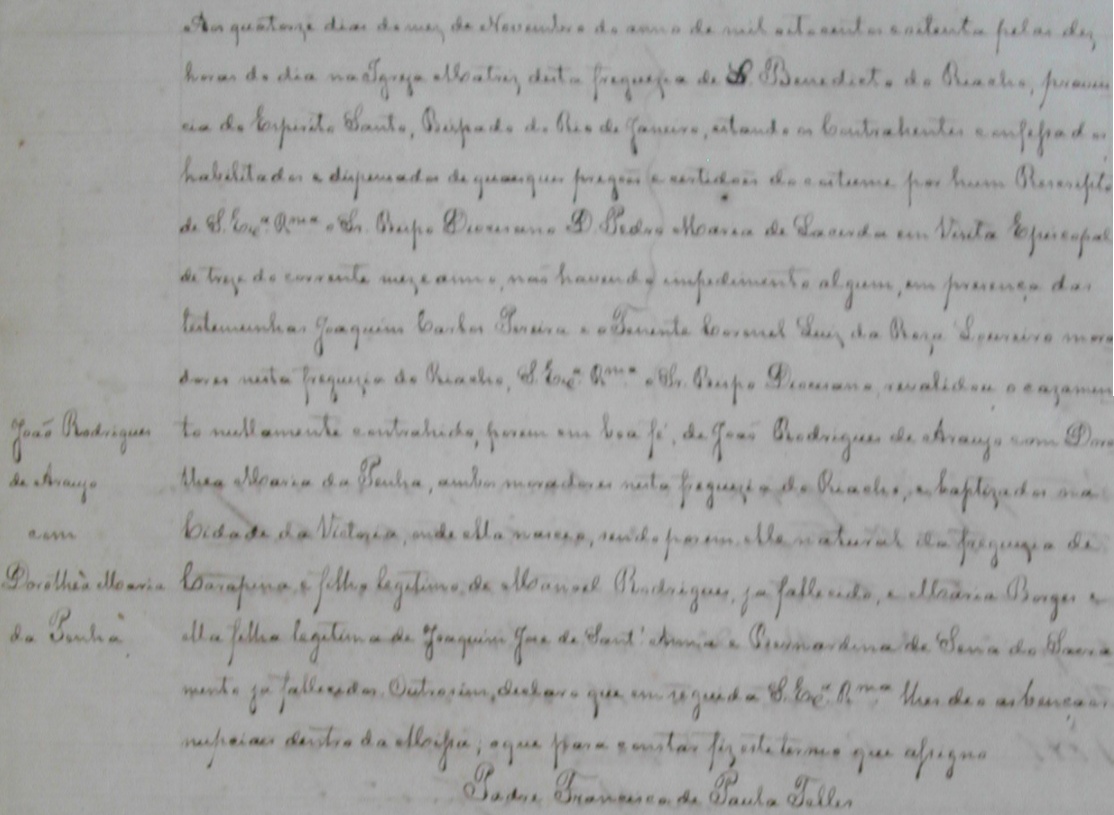 Aos quatorze dias do mez de Novembro do anno de mil oitocentos e oitenta pelas dez
horas do dia na Igreja Matriz desta freguezia de S. Benedicto do Riacho, provin
cia do Espirito Santo, Bispado do Rio de Janeiro, estando os Contrahentes confessados
habilitados e dispensados de quaesquer pregões e certidões do costume por hum Rescripto
de S. Exª. Rmª o Sr. Bispo Diocesano D. Pedro Maria de Lacerda em Visita Episcopal
de treze do corrente mez e anno, não havendo impedimento algum, em presença das
testemunhas Joaquim Carlos Pereira e o Tenente Coronel Luiz da Roza Loureiro mora
dores nesta freguezia do Riacho, S. Exª. Rmª o Sr. Bispo Diocesano, revalidou o cazamen
João Rodrigues
de Araujo
com
Dorothèa Maria
da Penha
to nullamente contrahido, porem em boa fé, de João Rodrigues de Araujo com Doro
thea Maria da Penha, ambos moradores nesta freguezia do Riacho, e baptizados na
Cidade da Victoria, onde ella nasceo, sendo porem elle natural da freguezia de
Carapina, e filho legitimo de Manoel Rodrigues, ja fallecido, e Maria Borges e
ella filha legitima de Joaquim José de Sant' Anna e Bernardina de Sena do Sacra
mento ja fallecidos. Outrosim, declaro que em seguida S. Exª. Rmª. lhes deo as bençaos
nupciaes dentro da Missa; o que para constar fiz este termo que assigno
Padre Francisco de Paula Telles